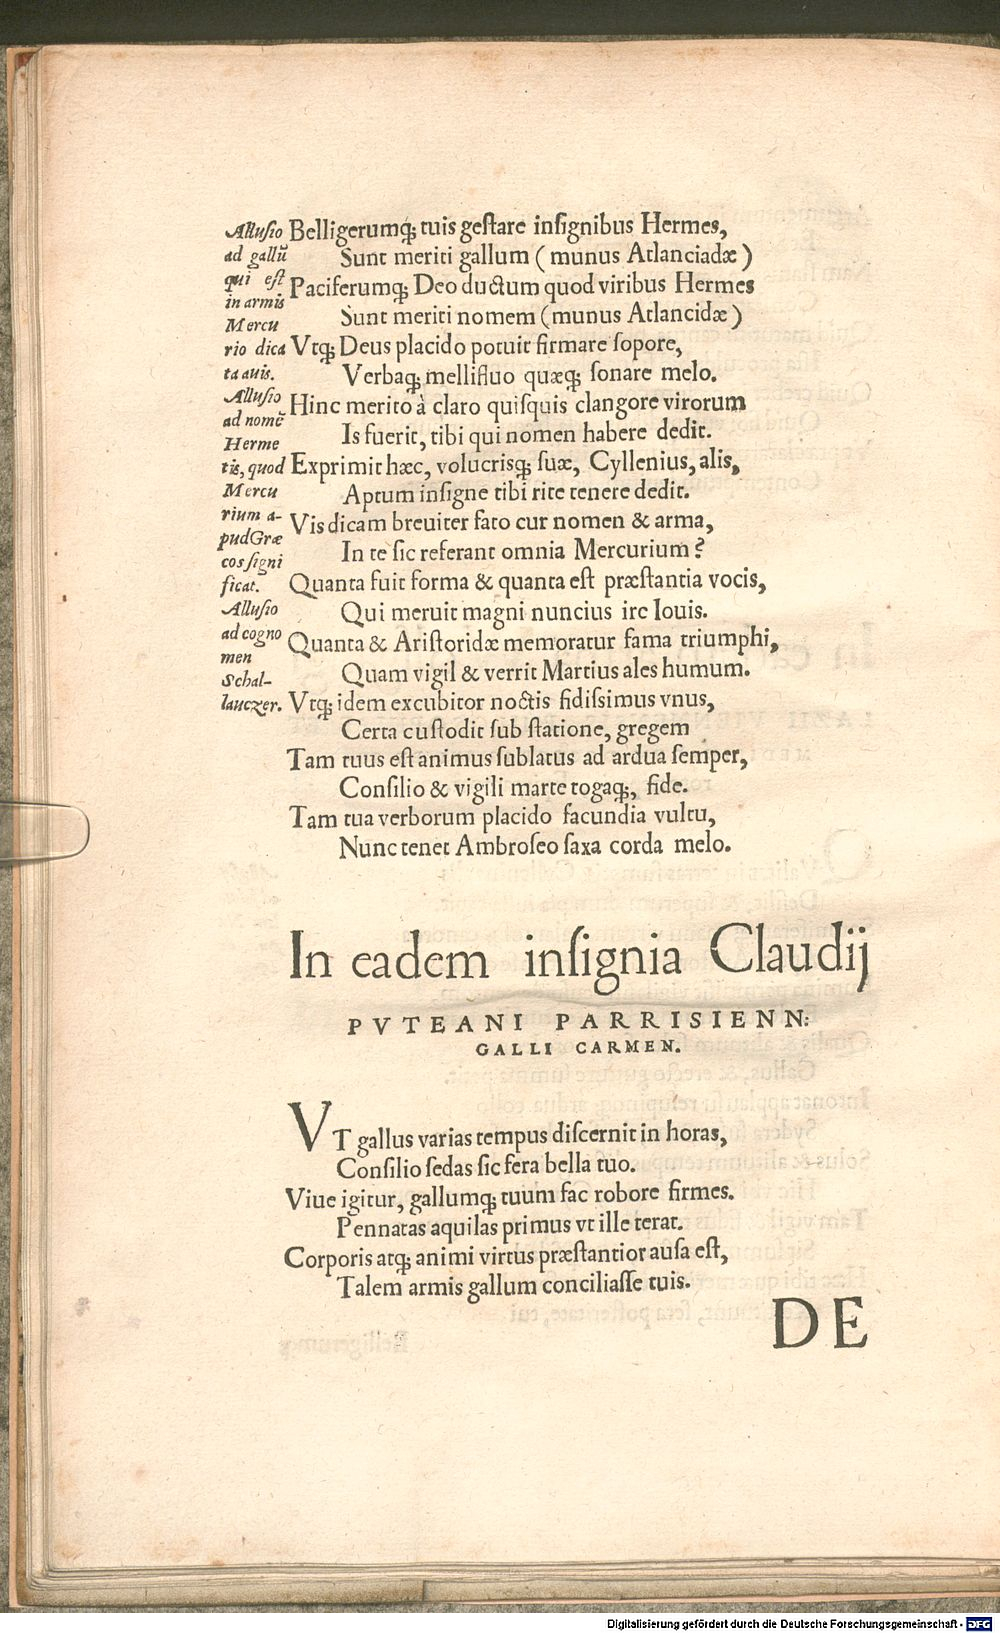 Allusio
ad gallũ
qui est
in armis
Mercu
rio dica
ta auis.
Allusio
ad nomẽ
Herme
tis, quod
Mercu
rium a-
pud Græ
cos signi
ficat.
Allusio
ad cogno
men
Schal-
lauczer.
Belligerumq́; tuis geſtare inſignibus Hermes,
Sunt meriti gallum ( munus Atlanciadæ )
Paciferumq́; Deo ductum quod viribus Hermes
Sunt meriti nomem ( munus Atlancidæ )
Vtq́; Deus placido potuit firmare ſopore,
Verbaq́; mellifluo quæq́; ſonare melo.
Hinc merito à claro quiſquis clangore virorum
Is fuerit, tibi qui nomen habere dedit.
Exprimit hæc, volucrisq́; ſuæ, Cyllenius, alis,
Aptum inſigne tibi rite tenere dedit.
Vis dicam breuiter fato cur nomen & arma,
In te ſic referant omnia Mercurium?
Quanta fuit forma & quanta eſt præſtantia vocis,
Qui meruit magni nuncius ire Iouis.
Quanta & Ariſtoridæ memoratur fama triumphi,
Quam vigil & verrit Martius ales humum.
Vtq́; idem excubitor noctis fidiſsimus vnus,
Certa cuſtodit ſub ſtatione, gregem
Tam tuus eſt animus ſublatus ad ardua ſemper,
Conſilio & vigili marte togaq́;, fide.
Tam tua verborum placido facundia vultu,
Nunc tenet Ambroſeo ſaxa corda melo.
In eadem inſignia Claudij
PVTEANI PARRISIENN:
GALLI CARMEN.
VT gallus varias tempus diſcernit in horas,
Conſilio ſedas ſic fera bella tuo.
Viue igitur, gallumq́; tuum fac robore firmes.
Pennatas aquilas primus vt ille terat.
Corporis atq́; animi virtus præſtantior auſa eſt,
Talem armis gallum conciliaſſe tuis.
DE
Digitalisierung gefördert durch die Deutsche Forschungsgemeinschaft - DFG